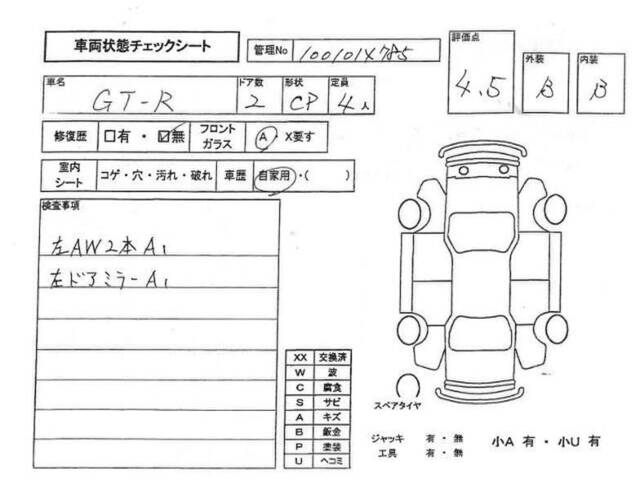 車両状態チェックシート
管理No 100101X785
評価点 4.5
外装 B
内装 B
車名 GT-R
ドア数 2
形状 CP
定員 4人
修復歴 □有・☑無
フロントガラス A・X要す
室内シート コゲ・穴・汚れ・破れ
車歴 自家用・( )
検査事項
左AW2本A1
左ドアミラーA1
XX 交換済
W 波
C 腐食
S サビ
A キズ
B 鈑金
P 塗装
U ヘコミ
スペアタイヤ
ジャッキ 有・無
工具 有・無
小A 有・小U 有